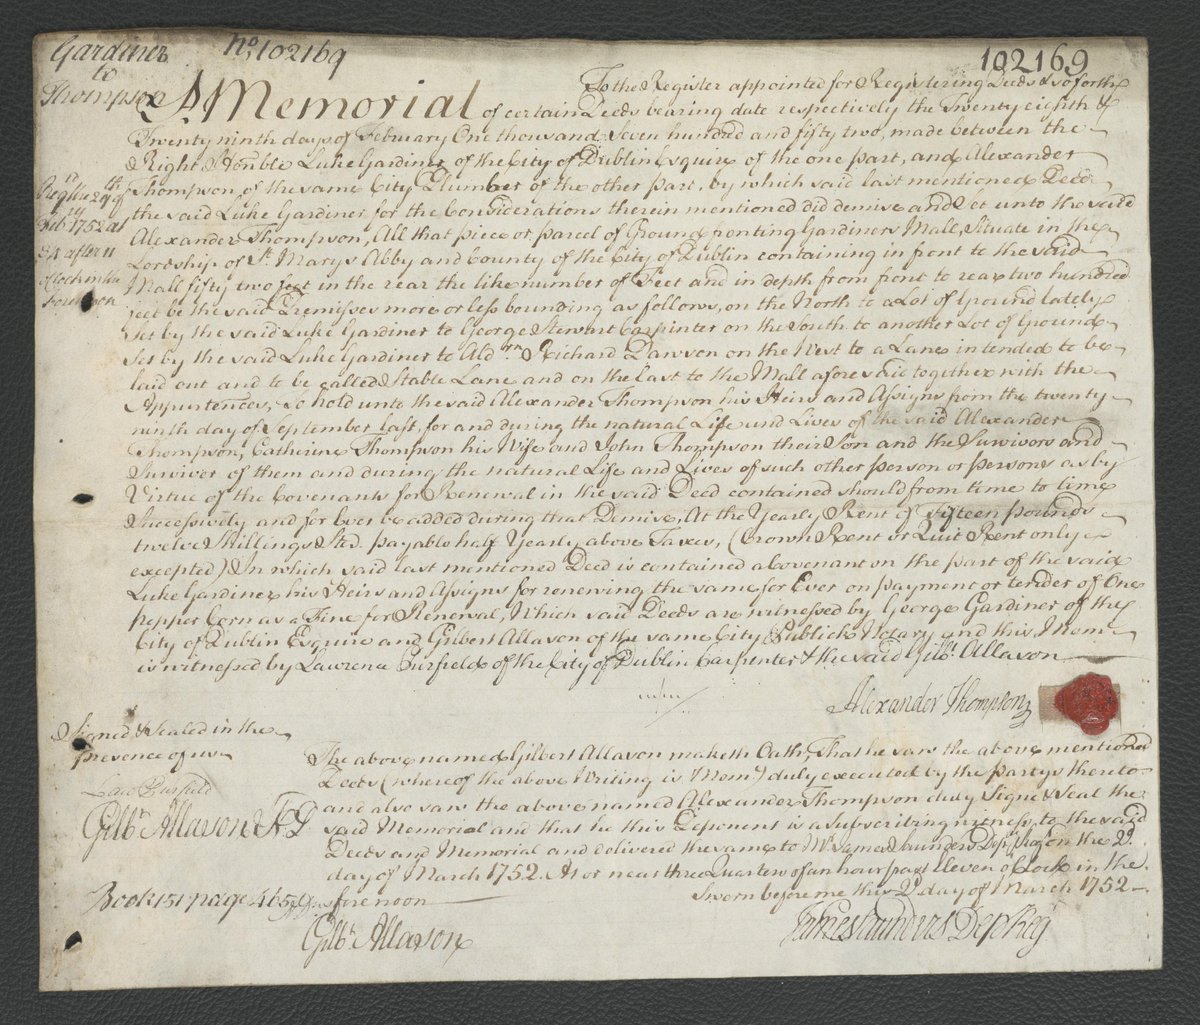 Gardiner
to
Thompson
no. 102169
102169
To the Register appointed for Registering Deeds & so forth
A Memorial of certain Deeds bearing date respectively the Twenty eighth &
Twenty ninth days of February One thousand Seven hundred and fifty two, made between the
Right Honble Luke Gardiner of the City of Dublin Esquire of the one part, and Alexander
Thompson of the same City Plumber of the other part, by which said last mentioned Deed
the said Luke Gardiner for the Considerations therein mentioned did demise and Set unto the said
Alexander Thompson, All that piece or parcel of Ground fronting Gardiners Mall, Situate in the
Lordship of St. Marys Abby and County of the City of Dublin containing in front to the said
Mall fifty two feet in the rear the like number of Feet and in depth from front to rear two hundred
feet be the said Premisses more or less bounding as follows, on the North to a Lot of Ground lately
set by the said Luke Gardiner to George Stewart Carpinter on the South to another Lot of Ground
Set by the said Luke Gardiner to Aldrn. Richard Dawson on the West to a Lane intended to be
laid out and to be called Stable Lane and on the East to the Mall aforesaid together with the
Appurtences, To hold unto the said Alexander Thompson his Heirs and Assigns from the twenty
ninth day of September last, for and during the natural Life and Lives of the said Alexander
Thompson, Catherine Thompson his Wife and John Thompson their Son and the Survivors and
Survivor of them and during the natural Life and Lives of such other person or persons as by
Virtue of the Covenants for Renewal in the said Deed contained should from time to time
Successively and for Ever be added during that Demise, At the Yearly Rent of fifteen pounds
twelve Shillings Ster. payable half Yearly above Taxes, (Crown Rent or Quit Rent only
excepted) In which said last mentioned Deed is contained a Covenant on the part of the said
Luke Gardiner his Heirs and Assigns for renewing the same for Ever on payment or tender of One
pepper Corn as a Fine for Renewal, Which said Deeds are witnessed by George Gardiner of the
City of Dublin Esquire and Gilbert Allason of the same City Publick Notary and this Meml.
is witnessed by Lawrence Purfield of the City of Dublin Carpenter & the said Gilbt. Allason
Regd the 29th
Feb 1752 at
after 11
o'Clock in the
forenoon
Alexander Thompson
Signed & Sealed in the
presence of us
Lawe Purfield
Gilbt. Allason
The above named Gilbert Allason maketh Oath, That he saw the above mentioned
Deeds (whereof the above Writing is Meml.) duly executed by the Partys thereto
and also saw the above named Alexander Thompson duly Sign & Seal the
said Memorial and that he this Deponent is a subscribing witness, to the said
Deeds and Memorial and delivered the same to Mr. James Saunders Depy. Regr. on the 2d.
day of March 1752. At or near three Quarters of an hour past Eleven o Clock in the
forenoon
Sworn before me this 2d. day of March 1752
Book 151 page 465
Gilbt. Allason
James Saunders Dep Reg